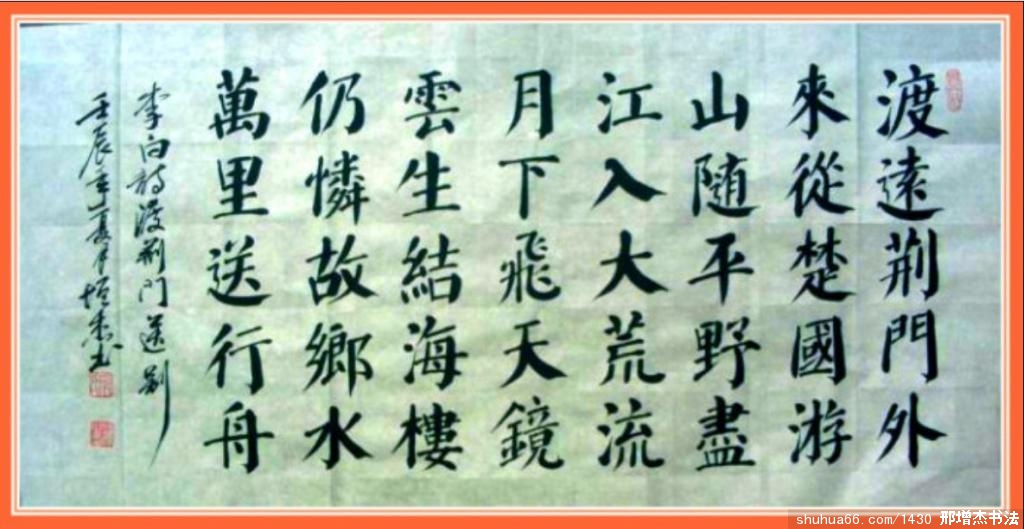 渡遠荆門外
來從楚國游
山隨平野盡
江入大荒流
月下飛天鏡
雲生結海樓
仍憐故鄉水
萬里送行舟
李白詩渡荆門送别
壬辰年夏月增杰书
shuhua66.com/1430 邢增杰书法